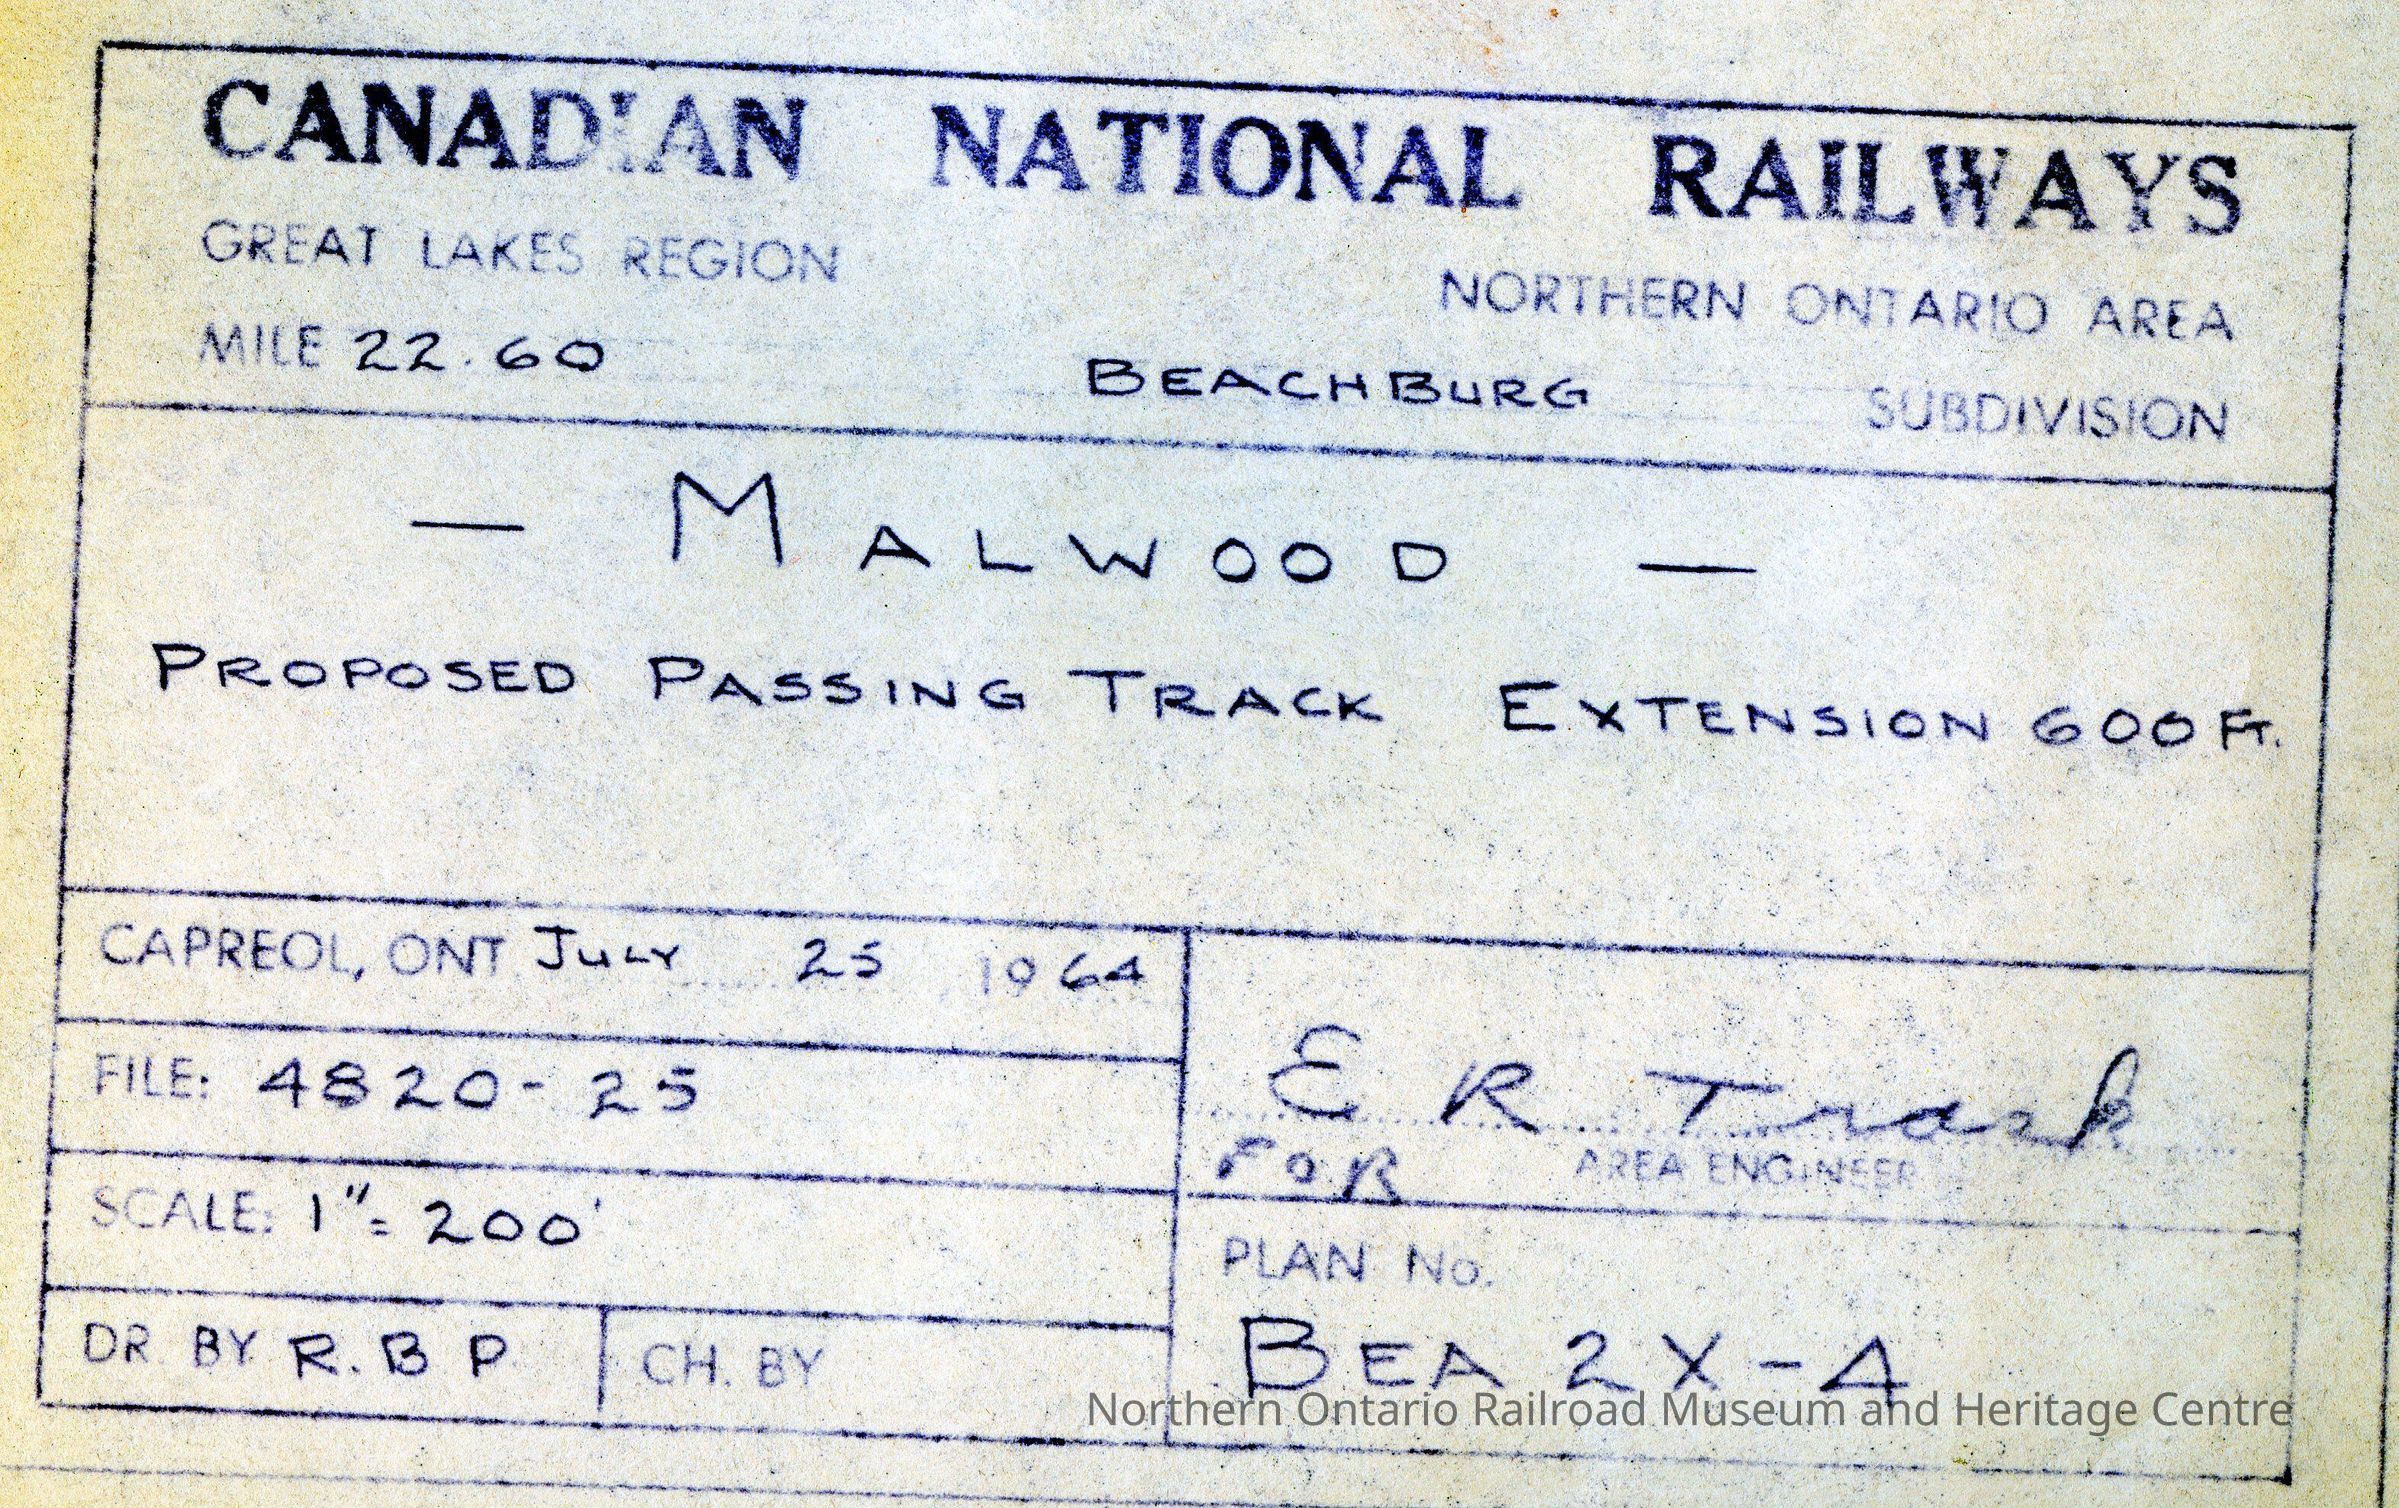 CANADIAN NATIONAL RAILWAYS
GREAT LAKES REGION NORTHERN ONTARIO AREA
MILE 22.60 BEACHBURG SUBDIVISION
— MALWOOD —
PROPOSED PASSING TRACK EXTENSION 600 FT.
CAPREOL, ONT. JULY 25, 1964
FILE: 4820-25
SCALE: 1"= 200'
DR. BY R.B P.
CH. BY
E R Trask
FOR AREA ENGINEER
PLAN No.
BEA 2X-4
Northern Ontario Railroad Museum and Heritage Centre